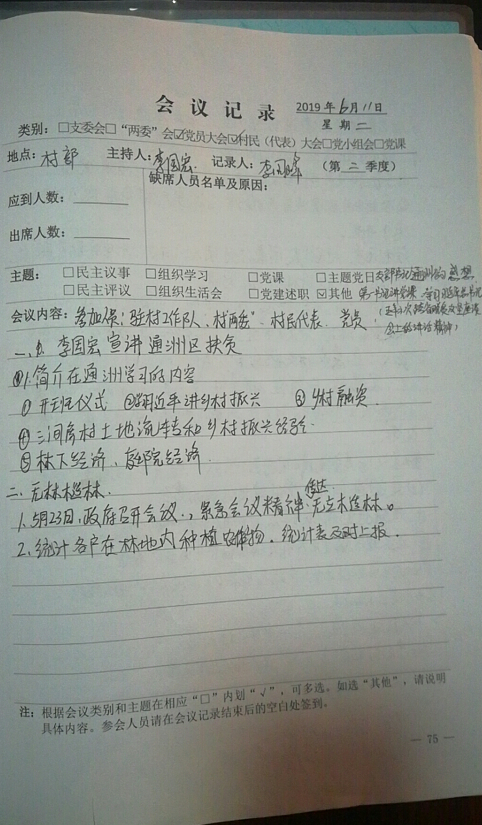 会议记录 2019年6月11日
星期二
类别：□支委会□“两委”会☑党员大会☑村民（代表）大会□党小组会□党课
地点：村部 主持人：李国宏 记录人：李 （第二季度）
应到人数：
缺席人员名单及原因：
出席人数：
主题：□民主议事 □组织学习 □党课 □主题党日
□民主评议 □组织生活会 □党建述职 ☑其他 第一书记讲党课
会议内容：参加人员：驻村工作队、村两委、村民代表、党员
一、李国宏宣讲通州区扶贫
1.简介在通州学习的内容
① 开班仪式 ②习近平讲乡村振兴 ③乡村融资
④三间房村土地流转和乡村振兴经验
⑤林下经济、庭院经济
二、无林木造林
传达
1.5月23日，政府召开会议，紧急会议精神无立木造林。
2.统计各户在林地内种植农作物，统计表及时上报。
注：根据会议类别和主题在相应“□”内划“√”，可多选。如选“其他”，请说明
具体内容。参会人员请在会议记录结束后的空白处签到。
— 75 —